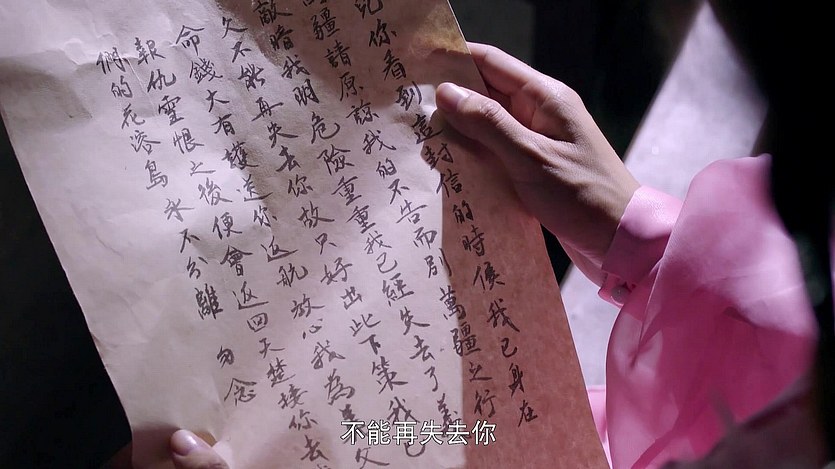 你看到這封信的時候我已身在
疆請原諒我的不告而別萬疆之行
敵暗我明危險重重我已經失去了義
父不能再失去你故只好出此下策我已
命錢大有護送你返航放心我為義父
報仇雪恨之後便會返回天楚接你去我
們的花溶島永不分離 勿念
不能再失去你